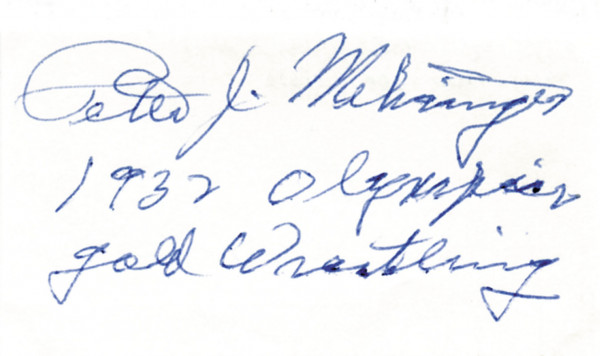 Peter J. Mehringer
1932 Olympics
gold Wrestling